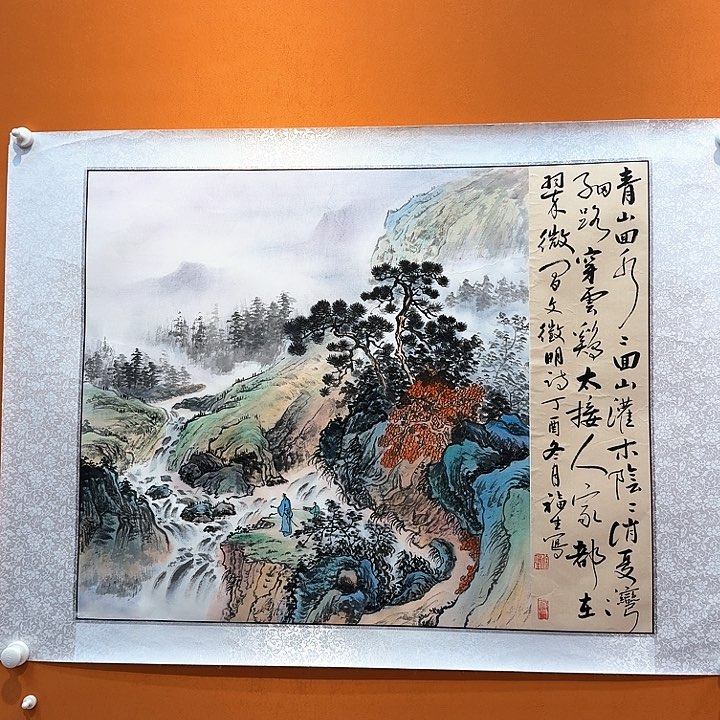 青山回水〻回山灌木陰〻消夏灣
細路穿雲鷄犬接人家都在
翠微間文徵明詩丁酉冬月福生寫